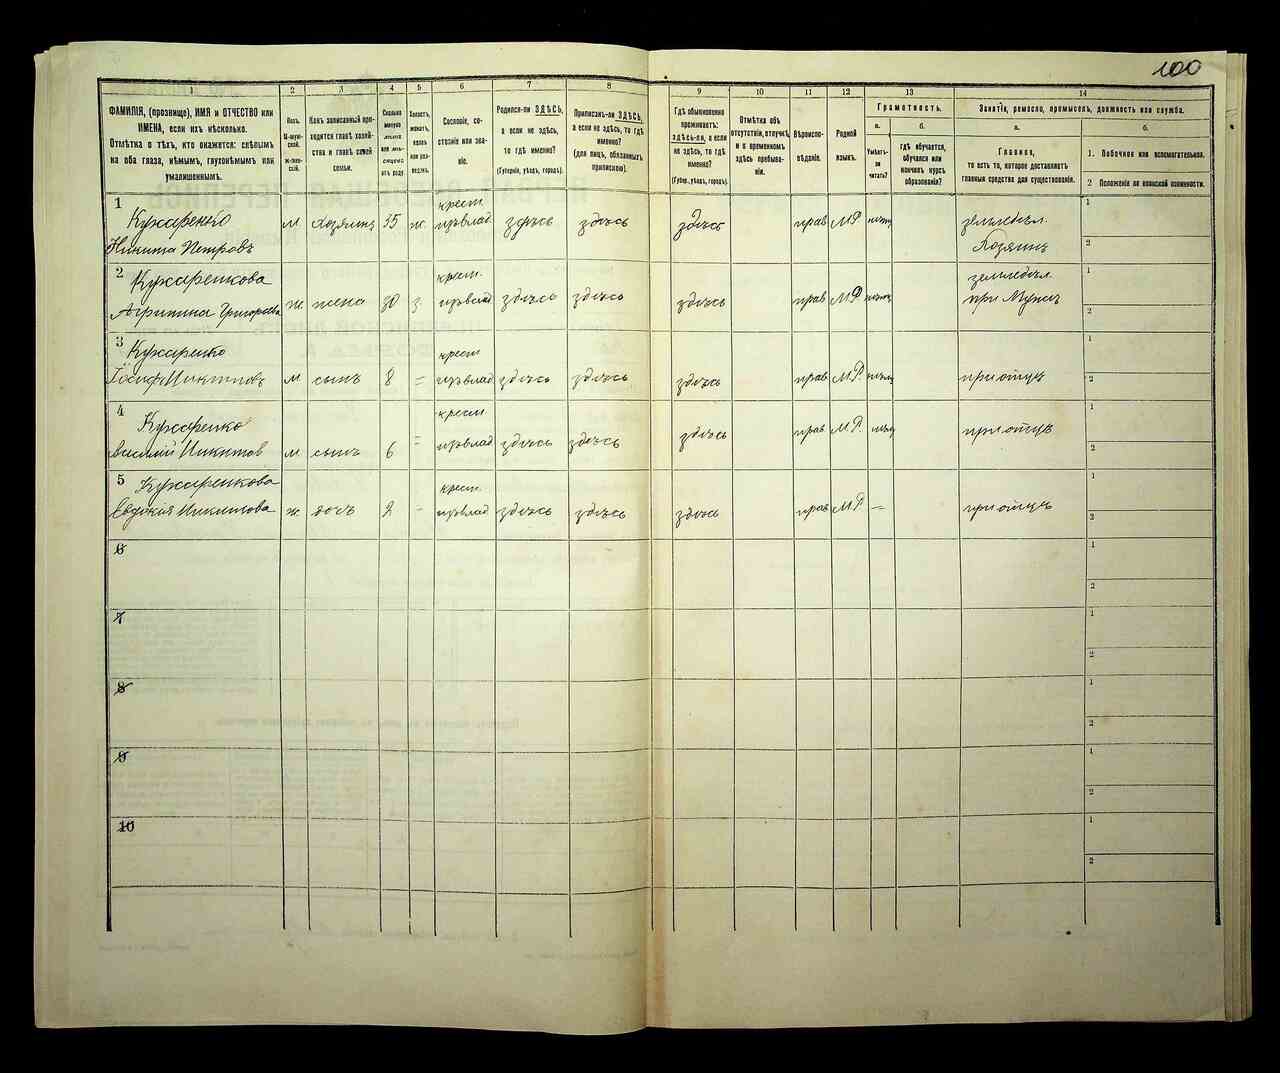 100
1
2
3
4
5
6
7
8
9
10
11
12
13
14
ФАМИЛІЯ, (прозвище), ИМЯ и ОТЧЕСТВО или
ИМЕНА, если ихъ нѣсколько.
Отмѣтка о тѣхъ, кто окажется: слѣпымъ
на оба глаза, нѣмымъ, глухонѣмымъ или
умалишеннымъ.
Полъ.
М-муж-
ской.
Ж-жен-
скій.
Какъ записанный при-
ходится главѣ хозяй-
ства и главѣ своей
семьи.
Сколько
минуло
лѣтъ
или мѣ-
сяцевъ
отъ роду.
Холостъ,
женатъ,
вдовъ
или раз-
веденъ.
Сословіе, со-
стояніе или зва-
ніе.
Родился-ли ЗДѢСЬ,
а если не здѣсь,
то гдѣ именно?
(Губернія, уѣздъ, городъ).
Приписанъ-ли ЗДѢСЬ,
а если не здѣсь, то гдѣ
именно?
(для лицъ, обязанныхъ
припискою).
Гдѣ обыкновенно
проживаетъ:
здѣсь-ли, а если
не здѣсь, то гдѣ
именно?
(Губерн., уѣздъ, городъ).
Отмѣтка объ
отсутствіи, отлучкѣ
и о временномъ
здѣсь пребыва-
ніи.
Вѣроиспо-
вѣданіе.
Родной
языкъ.
Грамотность.
а.
Умѣетъ-
ли
читать?
б.
Гдѣ обучается,
обучался или
кончилъ курсъ
образованія?
Занятіе, ремесло, промыселъ, должность или служба.
а.
Главное,
то есть то, которое доставляетъ
главныя средства для существованія.
б.
1. Побочное или вспомогательное.
2 Положеніе по воинской повинности.
1
Кухаренко
Никита Петровъ
м хозяинъ 35 ж.
крест.
здѣсь здѣсь здѣсь прав М.Р.
земледѣл.
Хозяинъ
1
2
2
Кухаренкова
Агрипина Григорьева
ж жена 30 з.
крест.
здѣсь здѣсь здѣсь прав М.Р
земледѣл.
при Мужѣ
1
2
3
Кухаренко
Іосифъ Никитовъ
м сынъ 8 =
крест
здѣсь здѣсь здѣсь прав М.Р.
при отцѣ
1
2
4
Кухаренко
Василій Никитов
м сынъ 6 =
крест
здѣсь здѣсь здѣсь прав М.Р.
при отцѣ
1
2
5
Кухаренкова
Евдокія Никитова
ж дочь 2 -
крест.
здѣсь здѣсь здѣсь прав М.Р —
при отцѣ
1
2
6
1
2
7
1
2
8
1
2
9
1
2
10
1
2